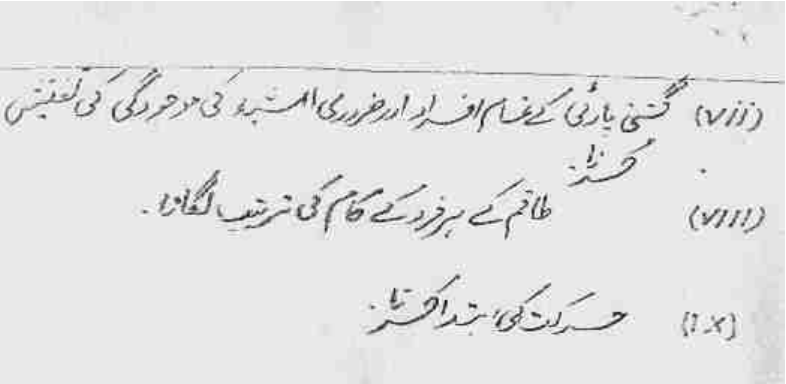 (vii) گشتی پارٹی کے تمام افراد اور ضروری اشیاء کی موجودگی کی تفتیش
کرنا۔
(viii) طاقم کے ہر فرد کے کام کی ترتیب لگانا۔
(ix) حرکت کی ابتدا کرنا۔